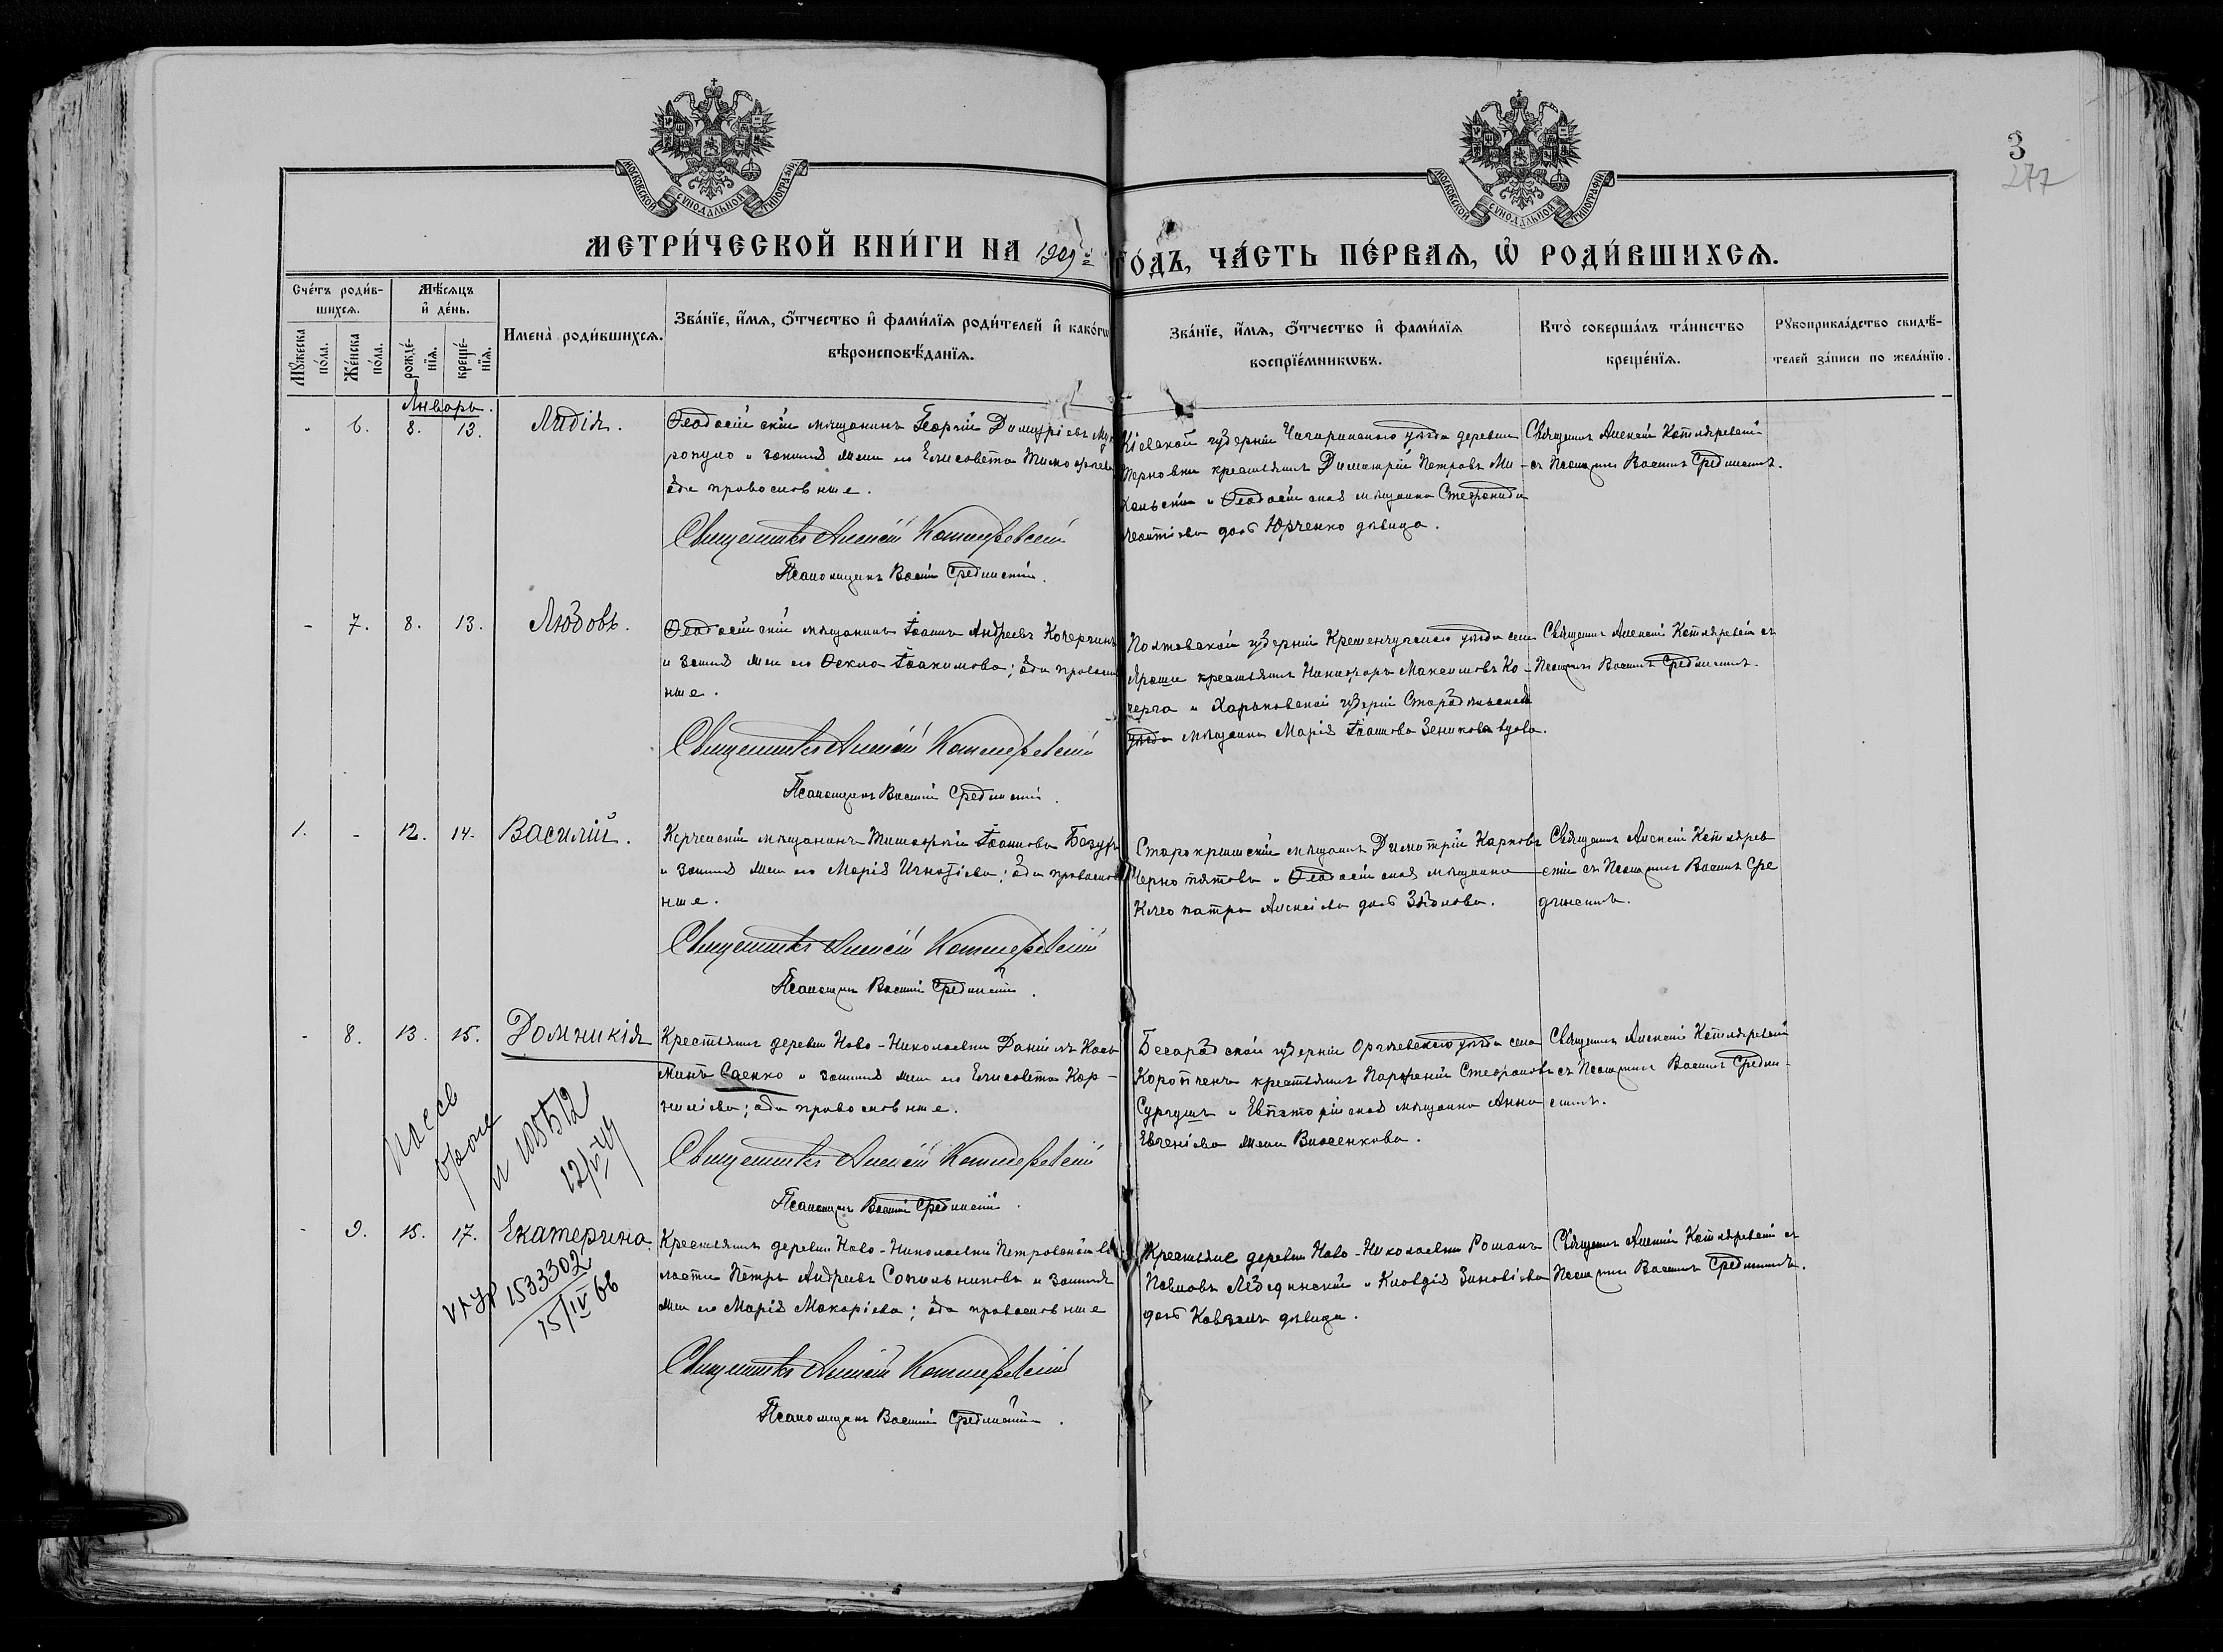 МОСКОВСКОЙ СѴНОДАЛЬНОЙ ТИПОГРАФІИ
МОСКОВСКОЙ СѴНОДАЛЬНОЙ ТИПОГРАФІИ
3
277
МЕТРИ́ЧЕСКОЙ КНИ́ГИ НА 1909й ГО́ДЪ, ЧА́СТЬ ПЕ́РВАѦ, Ѡ҆ РОДИ́ВШИХСѦ.
Сче́тъ роди́в-
шихсѧ.
Мꙋ́жеска по́ла.
Же́нска по́ла.
Мѣ́сѧцъ
и҆ де́нь.
рожде́-
нїѧ.
креще́-
нїѧ.
Имена̀ роди́вшихсѧ.
Зва́нїе, и҆́мѧ, ѻ҆́тчество и҆ фами́лїѧ роди́телей и҆ како́гѡ
вѣроисповѣ́данїѧ.
Зва́нїе, и҆́мѧ, ѻ҆́тчество и҆ фами́лїѧ
воспрїе́мникѡвъ.
Кто̀ соверша́лъ та́инство
креще́нїѧ.
Рꙋкоприкла́дство свидѣ́-
телей за́писи по жела́нїю.
Январь.
6. 8. 13. Лидія.
Ѳеодосійскій мѣщанинъ Георгій Димитріевъ
и законная жена его Елисавета
оба православные.
Священникъ Алексій Котляревскій
Псаломщикъ Василій Срединскій.
Кіевской губерніи Чигиринскаго уѣзда деревни
Терновки крестьянинъ Димитрій Петровъ Ми-
и Ѳеодосійская мѣщанка Стефанида
дочь Юрченко дѣвица.
Священникъ Алексій Котляревскій
съ Псаломщикомъ Василіемъ Срединскимъ.
- 7. 8. 13. Любовь.
Ѳеодосійскій мѣщанинъ Іоаннъ Андреевъ
и законная жена его Ѳекла Іоакимова; оба православ
ные.
Священникъ Алексій Котляревскій
Псаломщикъ Василій Срединскій.
Полтавской губерніи Кременчугскаго уѣзда села
крестьянинъ Никифоръ Максимовъ Ко-
черга и Харьковской губерніи Старобѣльскаго
уѣзда мѣщанка Марія Іоаннова Зеникова вдова.
Священникъ Алексій Котляревскій съ
Псаломщикомъ Василіемъ Срединскимъ.
1. - 12. 14. Василій.
Керченскій мѣщанинъ Тимофей Іоанновъ
и законная жена его Марія Игнатіева; оба православ
ные.
Священникъ Алексій Котляревскій
Псаломщикъ Василій Срединскій.
Старокрымскій мѣщанинъ Димитрій Карповъ
Чернопятовъ и Ѳеодосійская мѣщанка
Клеопатра Алексіева дочь
Священникъ Алексій Котлярев
скій съ Псаломщикомъ Василіемъ Сре
динскимъ.
- 8. 13. 15. Домникія
Крестьянинъ деревни Ново-Николаевки Даніилъ Кось
минъ Саенко и законная жена его Елисавета Кор-
ниліева; оба православные.
Священникъ Алексій Котляревскій
Псаломщикъ Василій Срединскій.
Бесарабской губерніи Оргѣевскаго уѣзда села
крестьянинъ Парфеній Стефановъ
и Евпаторійская мѣщанка Анна
Евгеніева жена
Священникъ Алексій Котляревскій
съ Псаломщикомъ Василіемъ Средин-
скимъ.
12/VI 44
- 9. 15. 17. Екатерина.
Крестьянинъ деревни Ново-Николаевки Петровской во
лости Петръ Андреевъ Сопильниковъ и законная
жена его Марія Макаріева; оба православные
Священникъ Алексій Котляревскій
Псаломщикъ Василій Срединскій.
Крестьяне деревни Ново-Николаевки Романъ
Павловъ Лебединскій и Клавдія Зиновіева
дочь дѣвица.
Священникъ Алексій Котляревскій съ
Псаломщикомъ Василіемъ Срединскимъ.
1533302
15/IV 66